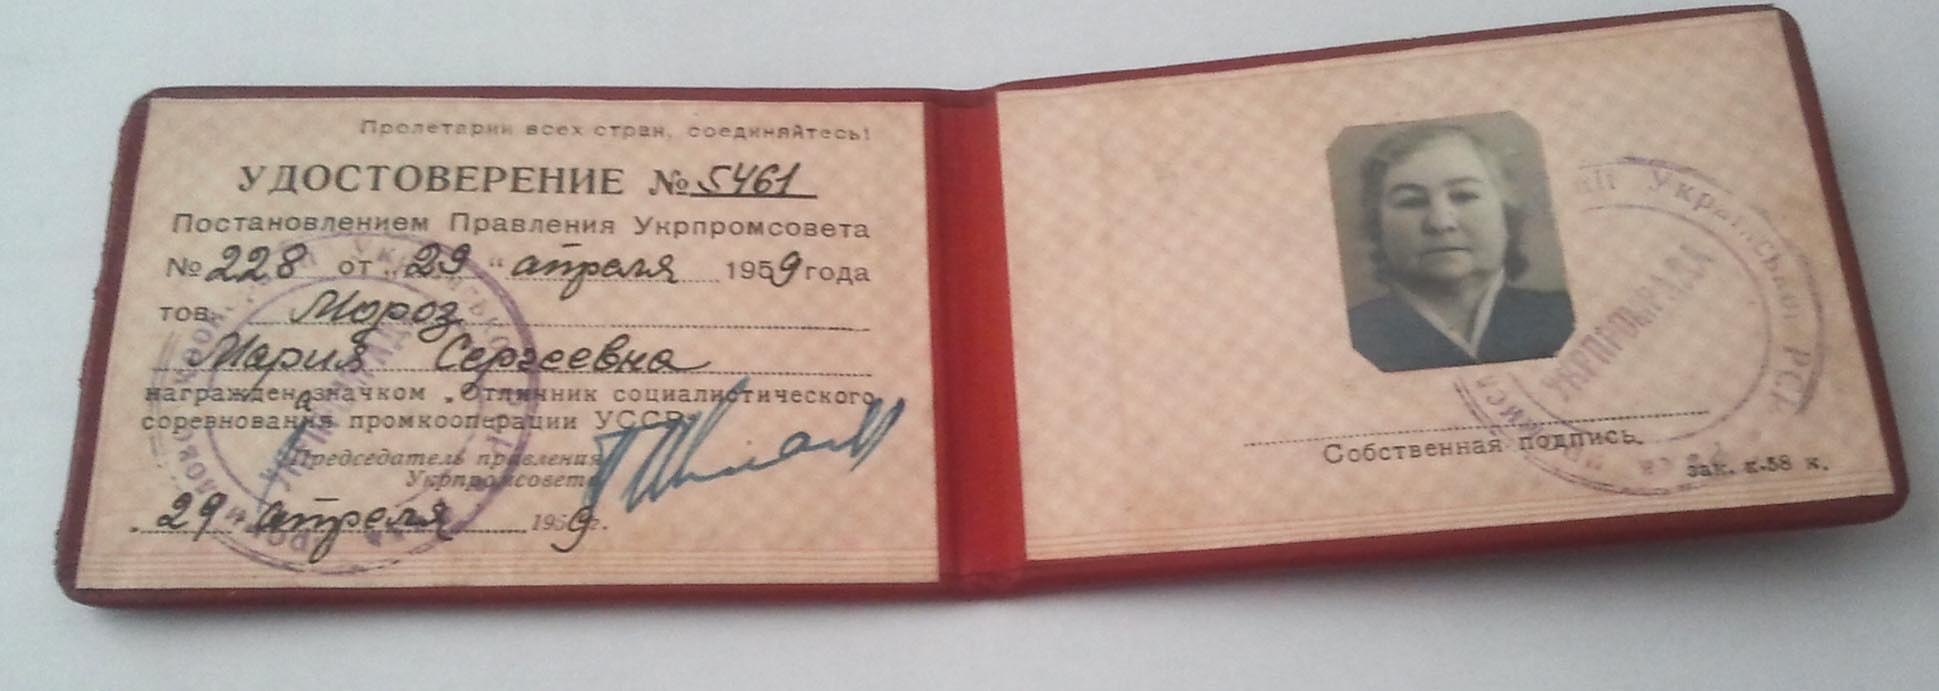 Пролетарии всех стран, соединяйтесь!
УДОСТОВЕРЕНИЕ № 5461
Постановлением Правления Укрпромсовета
№ 228 от „29“ апреля 1959 года
тов. Мороз
Мария Сергеевна
награжден а значком „Отличник социалистического
соревнования промкооперации УССР“
Председатель правления
Укрпромсовета
„29 апреля 1959 г.
Української РСР
УКРПРОМРАДА
Собственная подпись
зак. к-58 к.